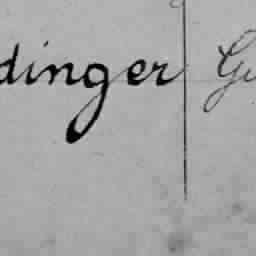 dinger Gu